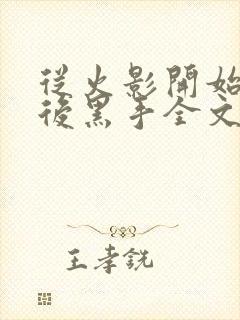 從火影開始
後黑手全文
王孝銳